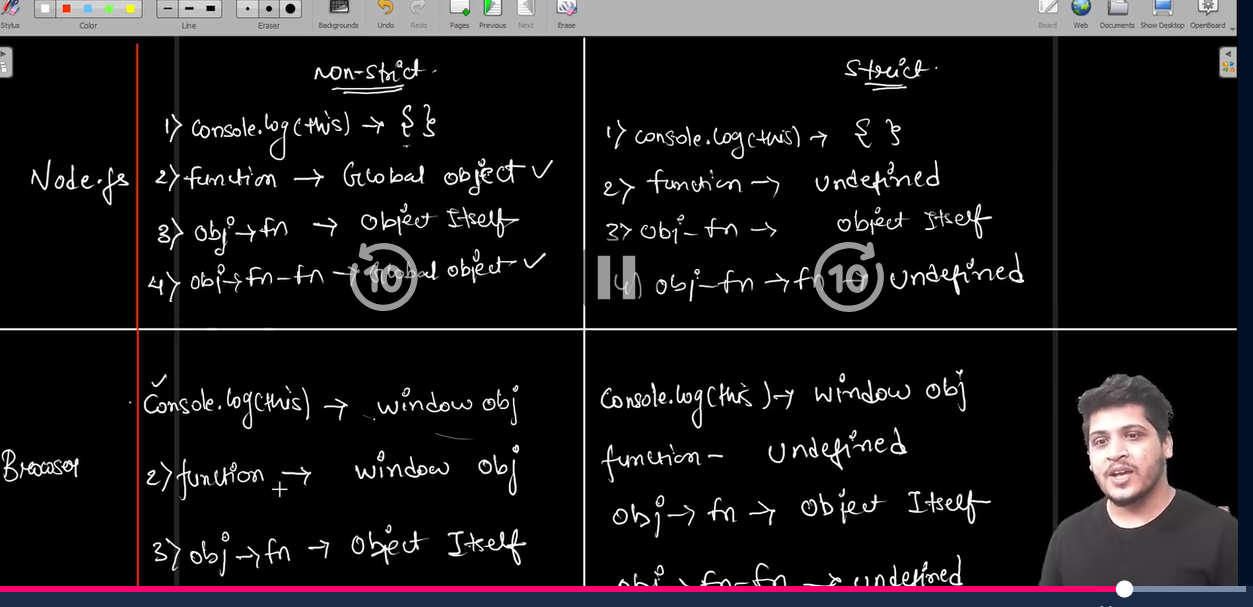 Stylus Color Line Eraser Backgrounds Undo Redo Pages Previous Next Erase Board Web Documents Show Desktop OpenBoard
non-strict.
1) Console.log(this) → { }
Node.js 2) function → Global object ✓
3) obj → fn → object Itself
4) obj → fn - fn → Global object ✓
10
strict.
1) console.log(this) → { }
2) function → undefined
3) obj - fn → object Itself
4) obj - fn → fn → undefined
10
✓
Console.log(this) → window obj
Browser 2) function → window obj
3) obj → fn → Object Itself
Console.log(this) → window obj
function - undefined
obj → fn → Object Itself
obj → fn - fn → undefined